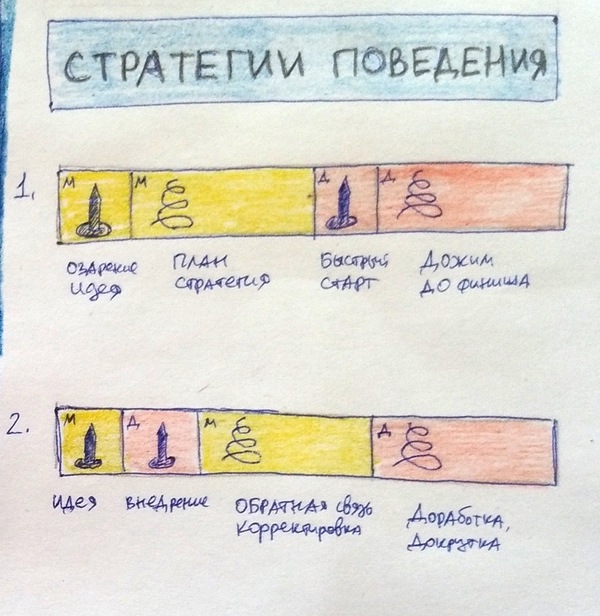 СТРАТЕГИИ ПОВЕДЕНИЯ
1.
М М Д Д
ОЗАРЕНИЕ ПЛАН БЫСТРЫЙ ДОЖИМ
ИДЕЯ СТРАТЕГИЯ СТАРТ ДО ФИНИША
2.
М Д М Д
ИДЕЯ ВНЕДРЕНИЕ ОБРАТНАЯ СВЯЗЬ ДОРАБОТКА,
КОРРЕКТИРОВКА ДОКРУТКА